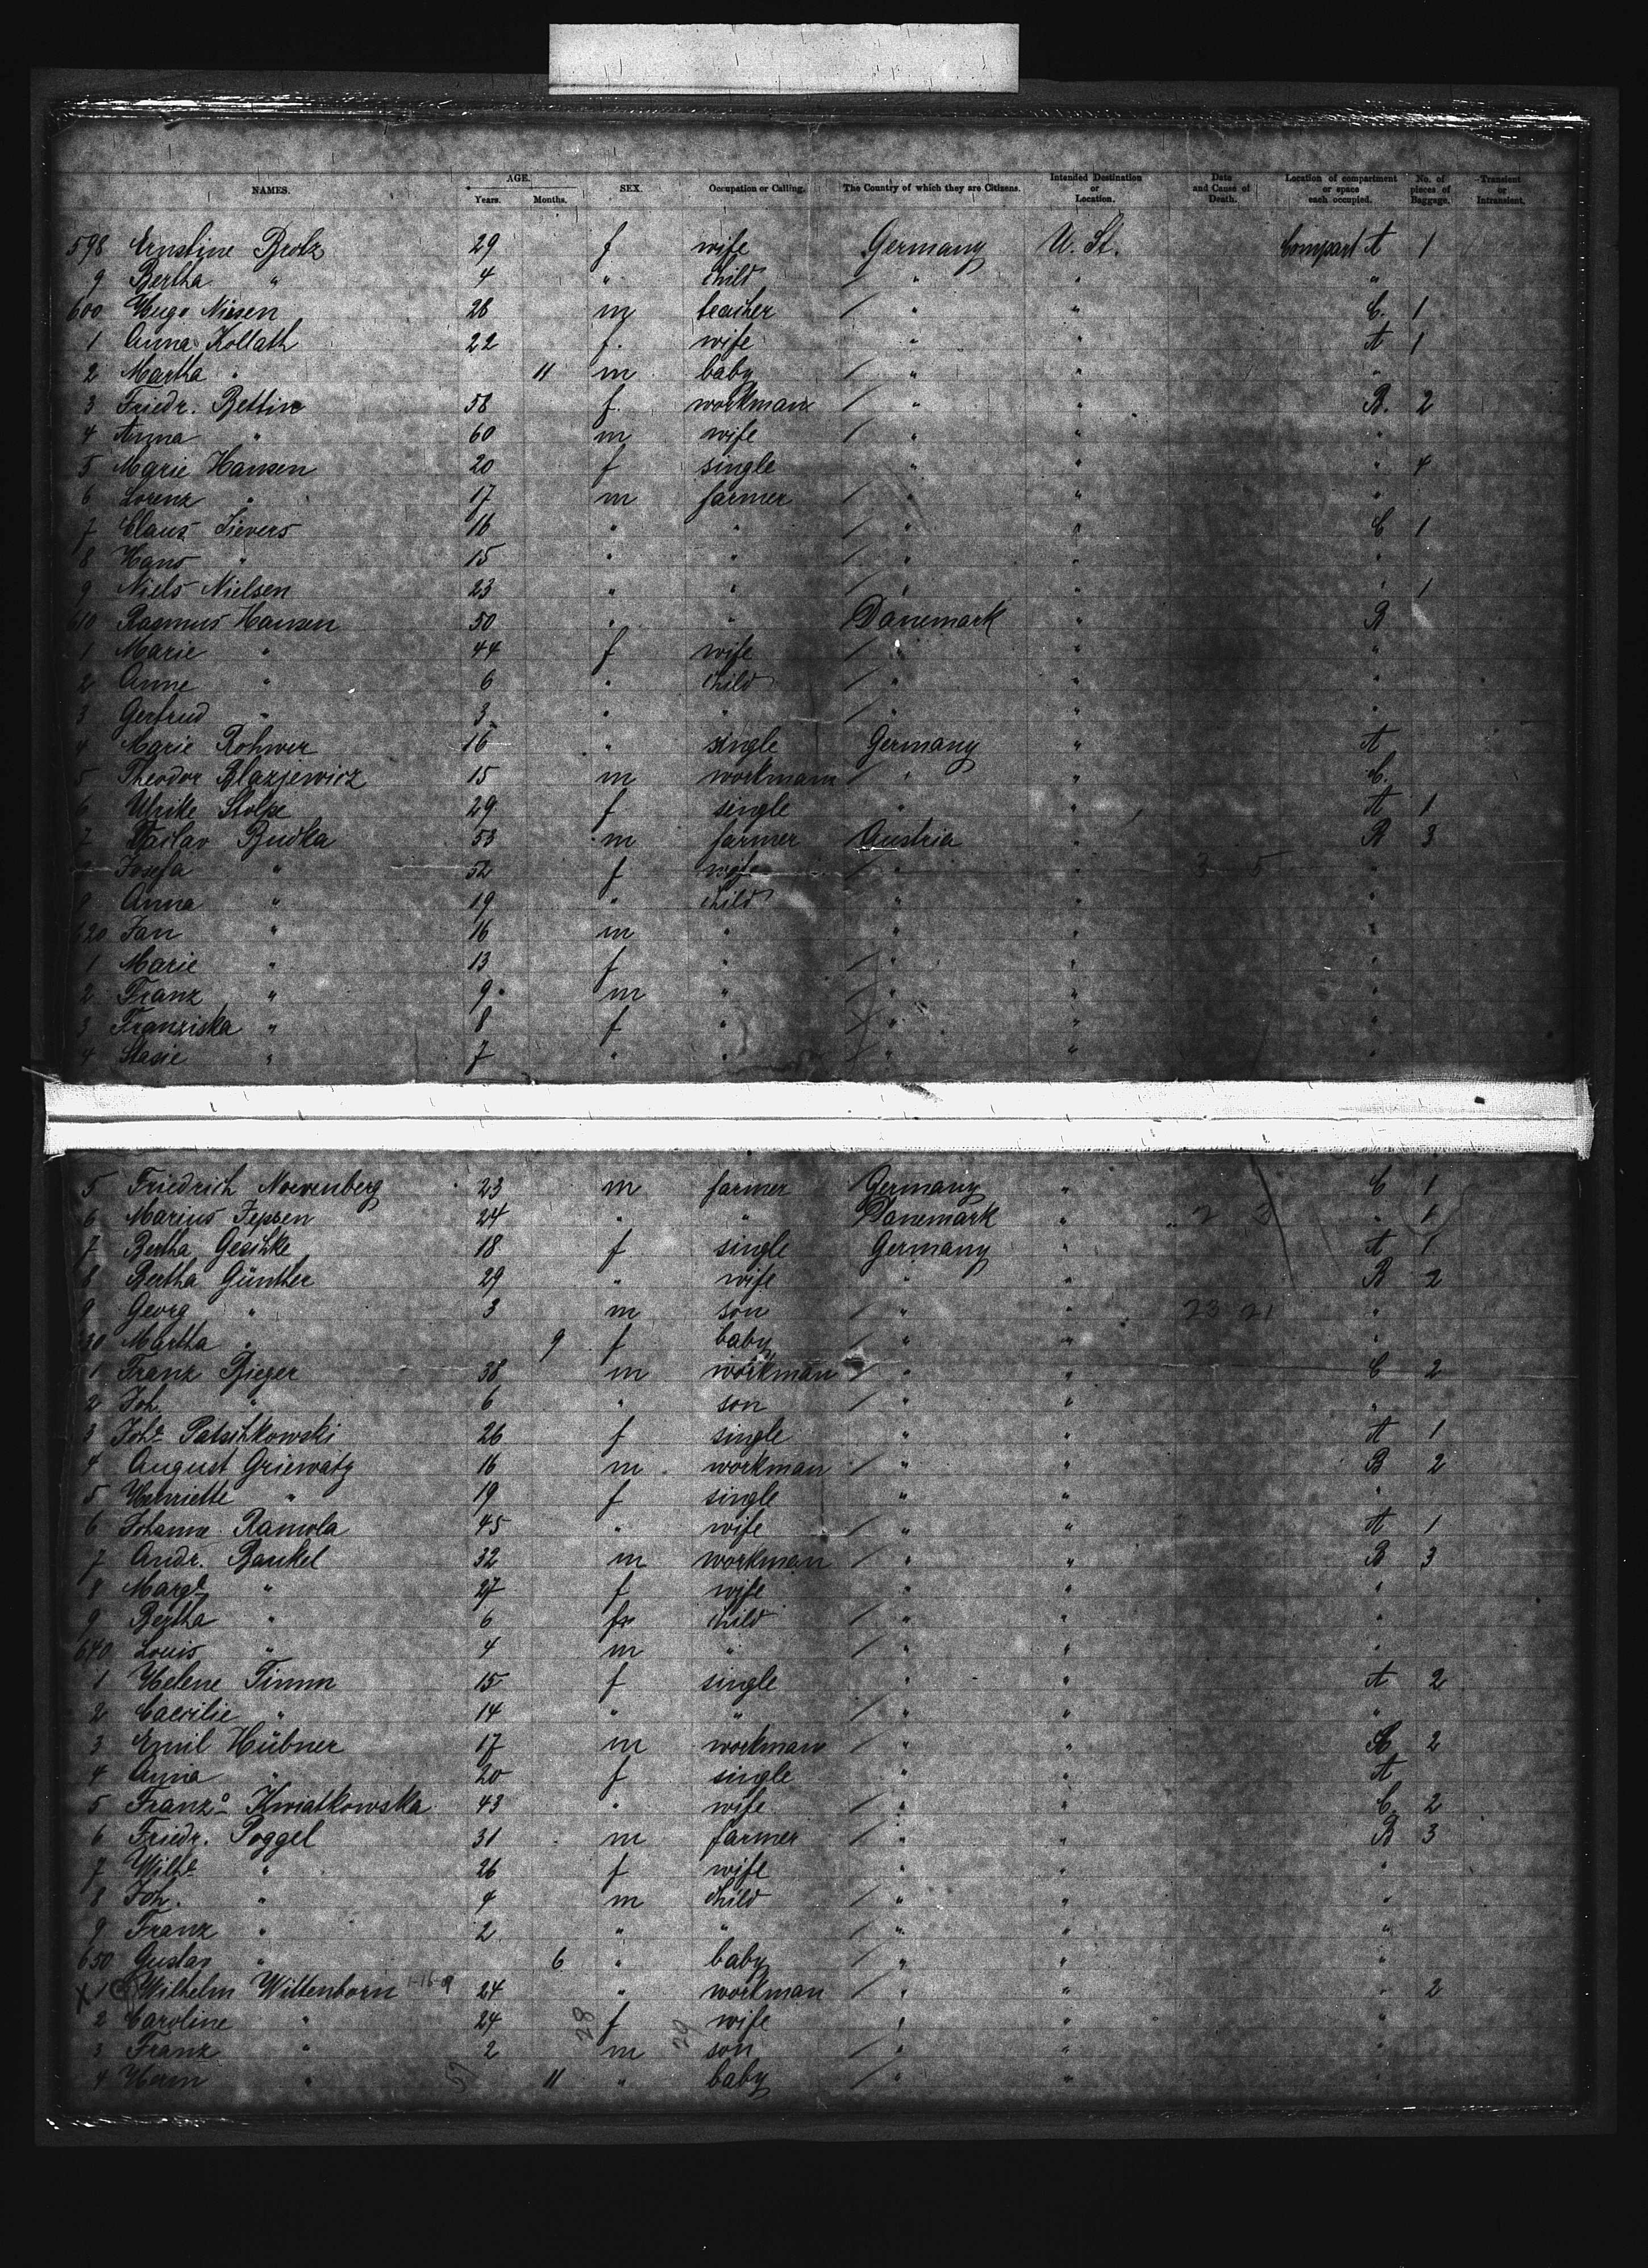 NAMES. AGE. Years. Months. SEX. Occupation or Calling. The Country of which they are Citizens. Intended Destination or Location. Date and Cause of Death. Location of compartment or space each occupied. No. of pieces of Baggage. Transient or Intransient.
598 Ernstine Brotz 29 f wife Germany U. St. Compart A 1
9 Bertha " 4 " child " " "
600 Hugo Nissen 28 m teacher " " C. 1
1 Anna Kollath 22 f. wife " " A 1
2 Martha " 11 m baby " " "
3 Friedr. Bettin 58 f. workman " " B. 2
4 Anna " 60 m wife " " "
5 Marie Hansen 20 f single " " " 4
6 Lorenz " 17 m farmer " " "
7 Claus Sievers 16 " " " " C 1
8 Hans " 15 " " " " "
9 Niels Nielsen 23 " " " " " 1
610 Rasmus Hansen 50 " " Danemark " B
1 Marie " 44 f wife " " "
2 Anne " 6 " child " " "
3 Gertrud " 3 " " " " "
4 Marie Rohwer 16 " single Germany " A
5 Theodor Blazjewicz 15 m workmann " " C.
6 Ulrike Stolpe 29 f single " " A 1
7 Vaclav Budka 53 m farmer Austria " B 3
8 Josefa " 52 f wife " " "
9 Anna " 19 " child " " "
620 Jan " 16 m " " " "
1 Marie " 13 f " " " "
2 Franz " 9 m " " " "
3 Franziska " 8 f " " " "
4 Stasie " 7 " " " " "
5 Friedrich Norvenberg 23 m farmer Germany " C 1
6 Marius Jepsen 24 " " Danemark " " 1
7 Bertha Geschke 18 f single Germany " A 1
8 Bertha Günther 29 " wife " " B 2
9 Georg " 3 m son " " 23 21 "
630 Martha " 9 f baby " " "
1 Franz Bieger 38 m workman " " C 2
2 Joh. " 6 " son " " "
3 Joh. Patschkowski 26 f single " " A 1
4 August Griewatz 16 m workman " " B 2
5 Henriette " 19 f single " " "
6 Johanne Ramola 45 " wife " " A 1
7 Andr. Bankel 32 m workman " " B 3
8 Margt " 27 f wife " " "
9 Bertha " 6 f child " " "
640 Louis " 4 m " " " "
1 Helene Timm 15 f single " " A 2
2 Caecilie " 14 " " " " "
3 Emil Hübner 17 m workman " " 2
4 Anna " 20 f single " " A
5 Franz Kwiatkowska 43 " wife " " C. 2
6 Friedr. Poggel 31 m farmer " " B 3
7 Wilh. " 26 f wife " " "
8 Joh. " 4 m child " " "
9 Franz " 2 " " " " "
650 Gustav " 6 " baby " " "
X 1 Wilhelm Wittenborn 24 " workman " " " 2
2 Caroline " 24 f wife " " "
3 Franz " 2 m son " " "
4 Herm " 11 " baby " "
28 29